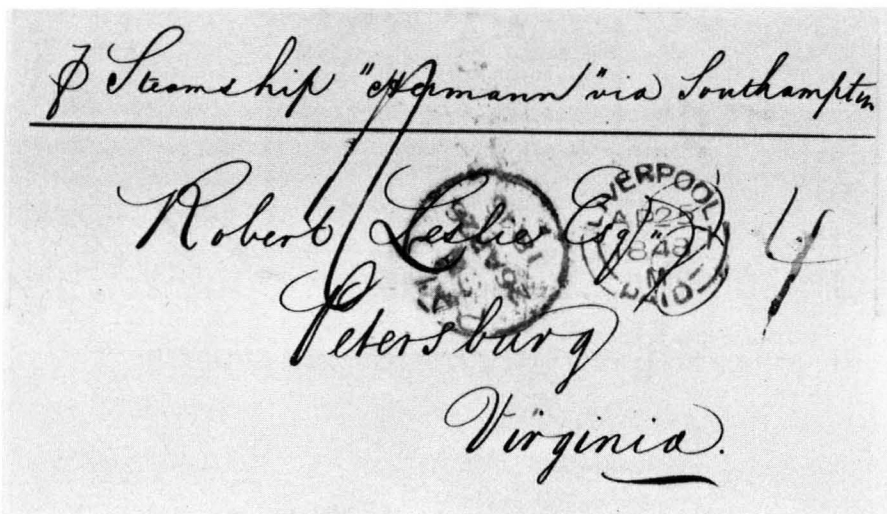 ℘ Steamship "Hermann" via Southampton
Robert Leslie Esqr
Petersburg
Virginia.
LIVERPOOL
AP 25
1848
M
PAID
4